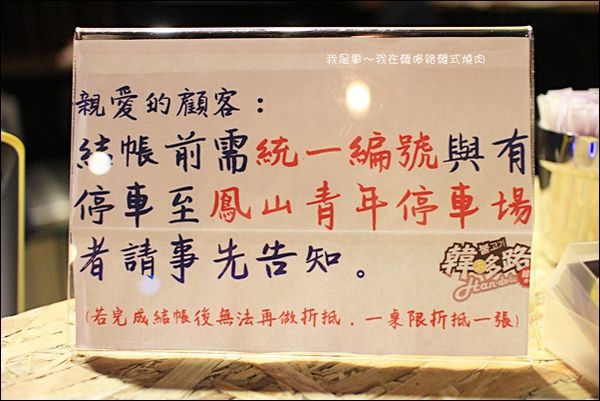 我是夢～我在韓哆路韓式燒肉
親愛的顧客：
結帳前需統一編號與有
停車至鳳山青年停車場
者請事先告知。
불고기
韓哆路
Han-dole
(若完成結帳後無法再做折抵，一桌限折抵一張)